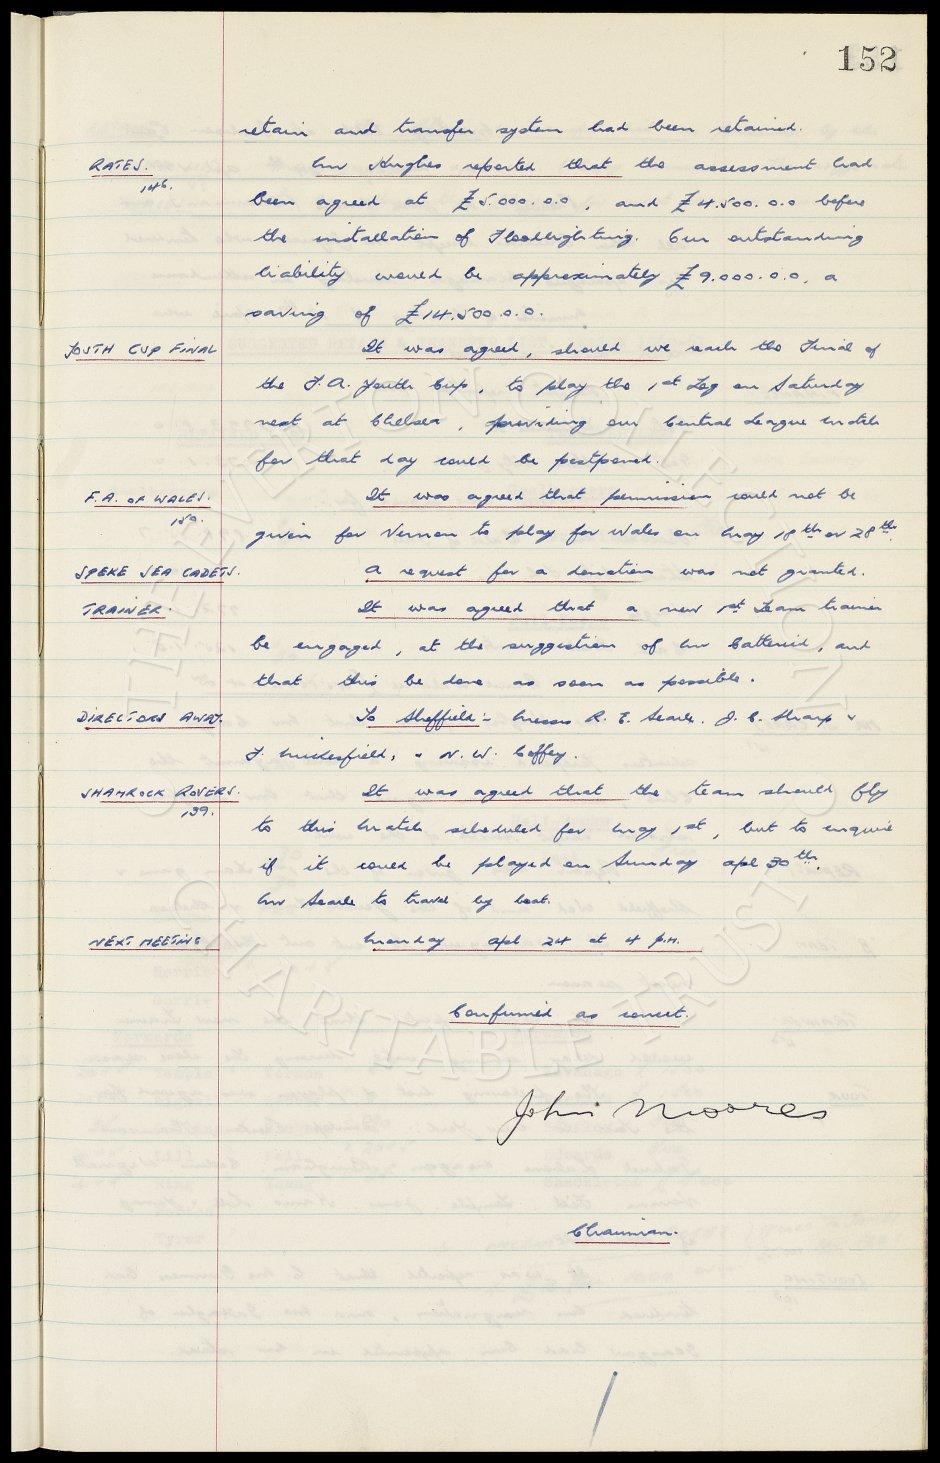 152
retain and transfer system had been retained.
RATES. Mr Hughes reported that the assessment had
146.
been agreed at £5.000.0.0, and £4.500.0.0 before
the installation of Floodlighting. Our outstanding
liability would be approximately £9.000.0.0, a
saving of £14.500.0.0.
YOUTH CUP FINAL It was agreed, should we reach the Final of
the F.A. Youth Cup, to play the 1st Leg on Saturday
next at Chelsea, providing our Central League match
for that day could be postponed.
F.A. OF WALES. It was agreed that permission could not be
150.
given for Vernon to play for Wales on May 18th or 28th.
SPEKE SEA CADETS. A request for a donation was not granted.
TRAINER. It was agreed that a new 1st Team trainer
be engaged, at the suggestion of Mr Catterick, and
that this be done as soon as possible.
DIRECTORS AWAY. To Sheffield:- Messrs R. E. Searle, J. C. Sharp &
F. Micklesfield, & N. W. Coffey.
SHAMROCK ROVERS. It was agreed that the team should fly
139.
to this match scheduled for May 1st, but to enquire
if it could be played on Sunday Apl 30th.
Mr Searle to travel by boat.
NEXT MEETING Monday Apl 24 at 4 P.M.
Confirmed as correct.
John Moores
Chairman.
THE EVERTON COLLECTION
CHARITABLE TRUST